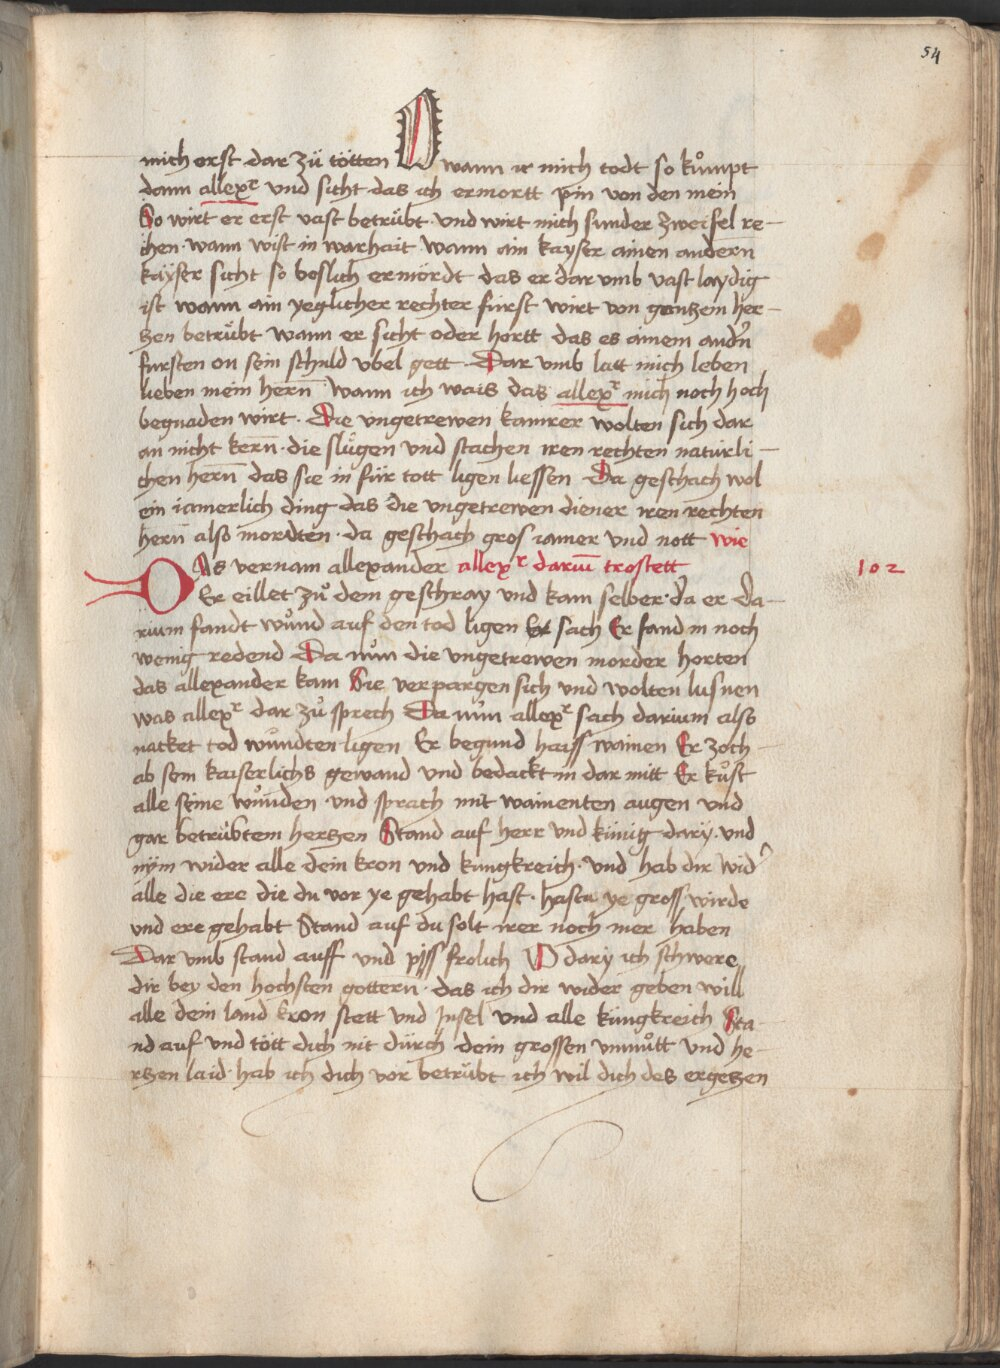 54
mich erst dar zů tötten Wann ir mich todt so kůmpt
dann allexr und sicht das ich ermortt pin von den mein
So wirt er erst vast betrübt und wirt mich sunder zweifel re-
chen wann wist in warhait wann ain kayser ainen andern
kayser sicht so boslich ermördt das er dar umb vast laydig
ist wann ain yeglicher rechter fürst wirt von gantzem her-
tzen betrübt wann er sicht oder hortt das es ainem andn
fursten on sein schuld vbel gett Dar vmb latt mich leben
lieben mein hern wann ich wais das allexr mich noch hoch
begnaden wirt Die vngetrewen kamrer wolten sich dar
an nicht kern die slůgen und stachen iren rechten natürli-
chen hern das sie in für tott ligen liessen Da geschach wol
ein iamerlich ding das die vngetrewen diener iren rechten
hern also mordten da geschach gros iamer und nott wie
Das vernam allexander allexr dariū trostett
102
Er eillet zů dem geschray und kam selber da er da-
rium fandt wůnd auf den tod ligen Er sach Er fand in noch
wenig redend Da nům die vngetrewen morder horten
das allexander kam Sie verpargen sich und wolten lusnen
was allexr dar zů sprech Da nům allexr sach darium also
nacket tod wůndten ligen Er begund haiss wainen Er zoch
ab sein kaiserlichs gewand und bedackt in dar mitt Er kůst
alle seine wůnden und sprach mit wainenten augen und
gar betrübtem hertzen Stand auf herr und künig dary und
nym wider alle dein kron und kungkreich und hab dir wid
alle die ere die du vor ye gehabt hast hastu ye gross wirde
und ere gehabt Stand auf du solt irer noch mer haben
Dar vmb stand auff und piss frolich O dary ich schwere
dir bey den hochsten gottern das ich dir wider geben will
alle dein land kron stett und Insel und alle küngkreich Sta-
nd auf und tött dich nit dürch dein grossen vnmůtt und he-
rtzen laid hab ich dich vor betrübt ich wil dich des ergetzen